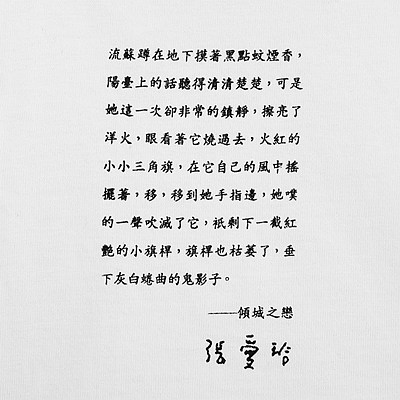 流蘇蹲在地下摸著黑點蚊煙香，
陽臺上的話聽得清清楚楚，可是
她這一次卻非常的鎮靜，擦亮了
洋火，眼看著它燒過去，火紅的
小小三角旗，在它自己的風中搖
擺著，移，移到她手指邊，她噗
的一聲吹滅了它，祇剩下一截紅
艷的小旗桿，旗桿也枯萎了，垂
下灰白蜷曲的鬼影子。
——傾城之戀
張愛玲